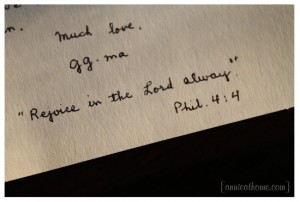 n.
much love,
gg-ma
"Rejoice in the Lord alway".
Phil. 4:4
[annieathome.com]